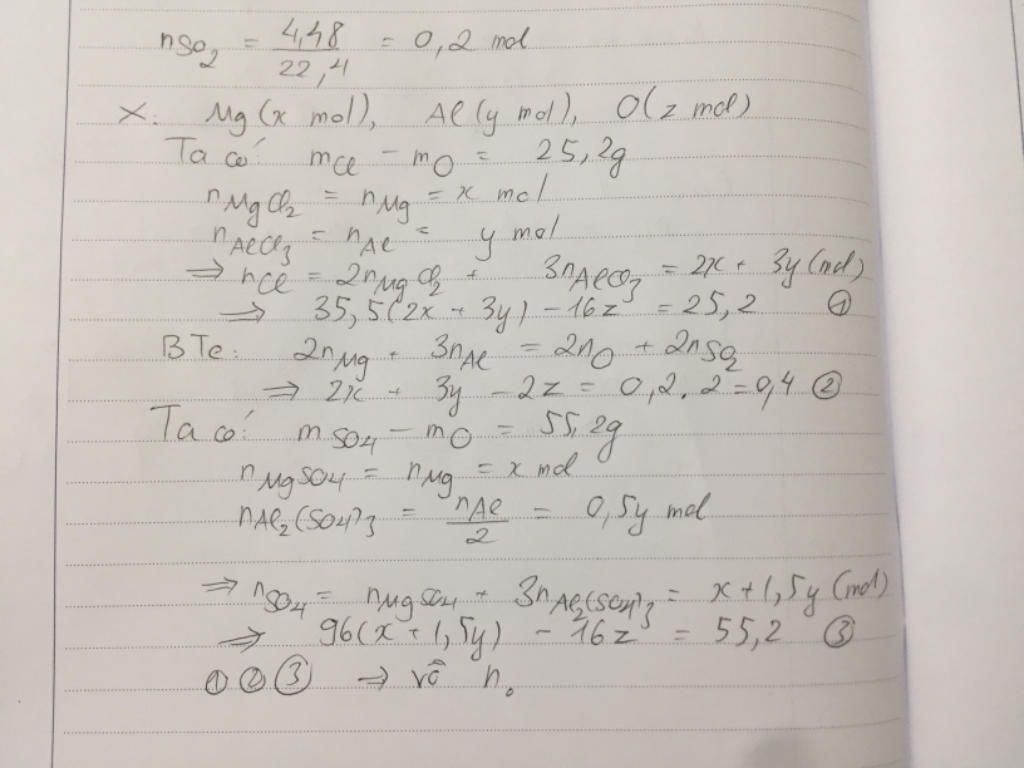 nSO₂ = 4,48/22,4 = 0,2 mol
X: Mg (x mol), Al (y mol), O (z mol)
Ta có: mCl - mO = 25,2g
nMgCl₂ = nMg = x mol
nAlCl₃ = nAl = y mol
⇒ nCl = 2nMgCl₂ + 3nAlCl₃ = 2x + 3y (mol)
⇒ 35,5(2x + 3y) - 16z = 25,2 ①
BTe: 2nMg + 3nAl = 2nO + 2nSO₂
⇒ 2x + 3y - 2z = 0,2.2 = 0,4 ②
Ta có: mSO₄ - mO = 55,2g
nMgSO₄ = nMg = x mol
nAl₂(SO₄)₃ = nAl/2 = 0,5y mol
⇒ nSO₄ = nMgSO₄ + 3nAl₂(SO₄)₃ = x + 1,5y (mol)
⇒ 96(x + 1,5y) - 16z = 55,2 ③
① ② ③ ⇒ vô n.